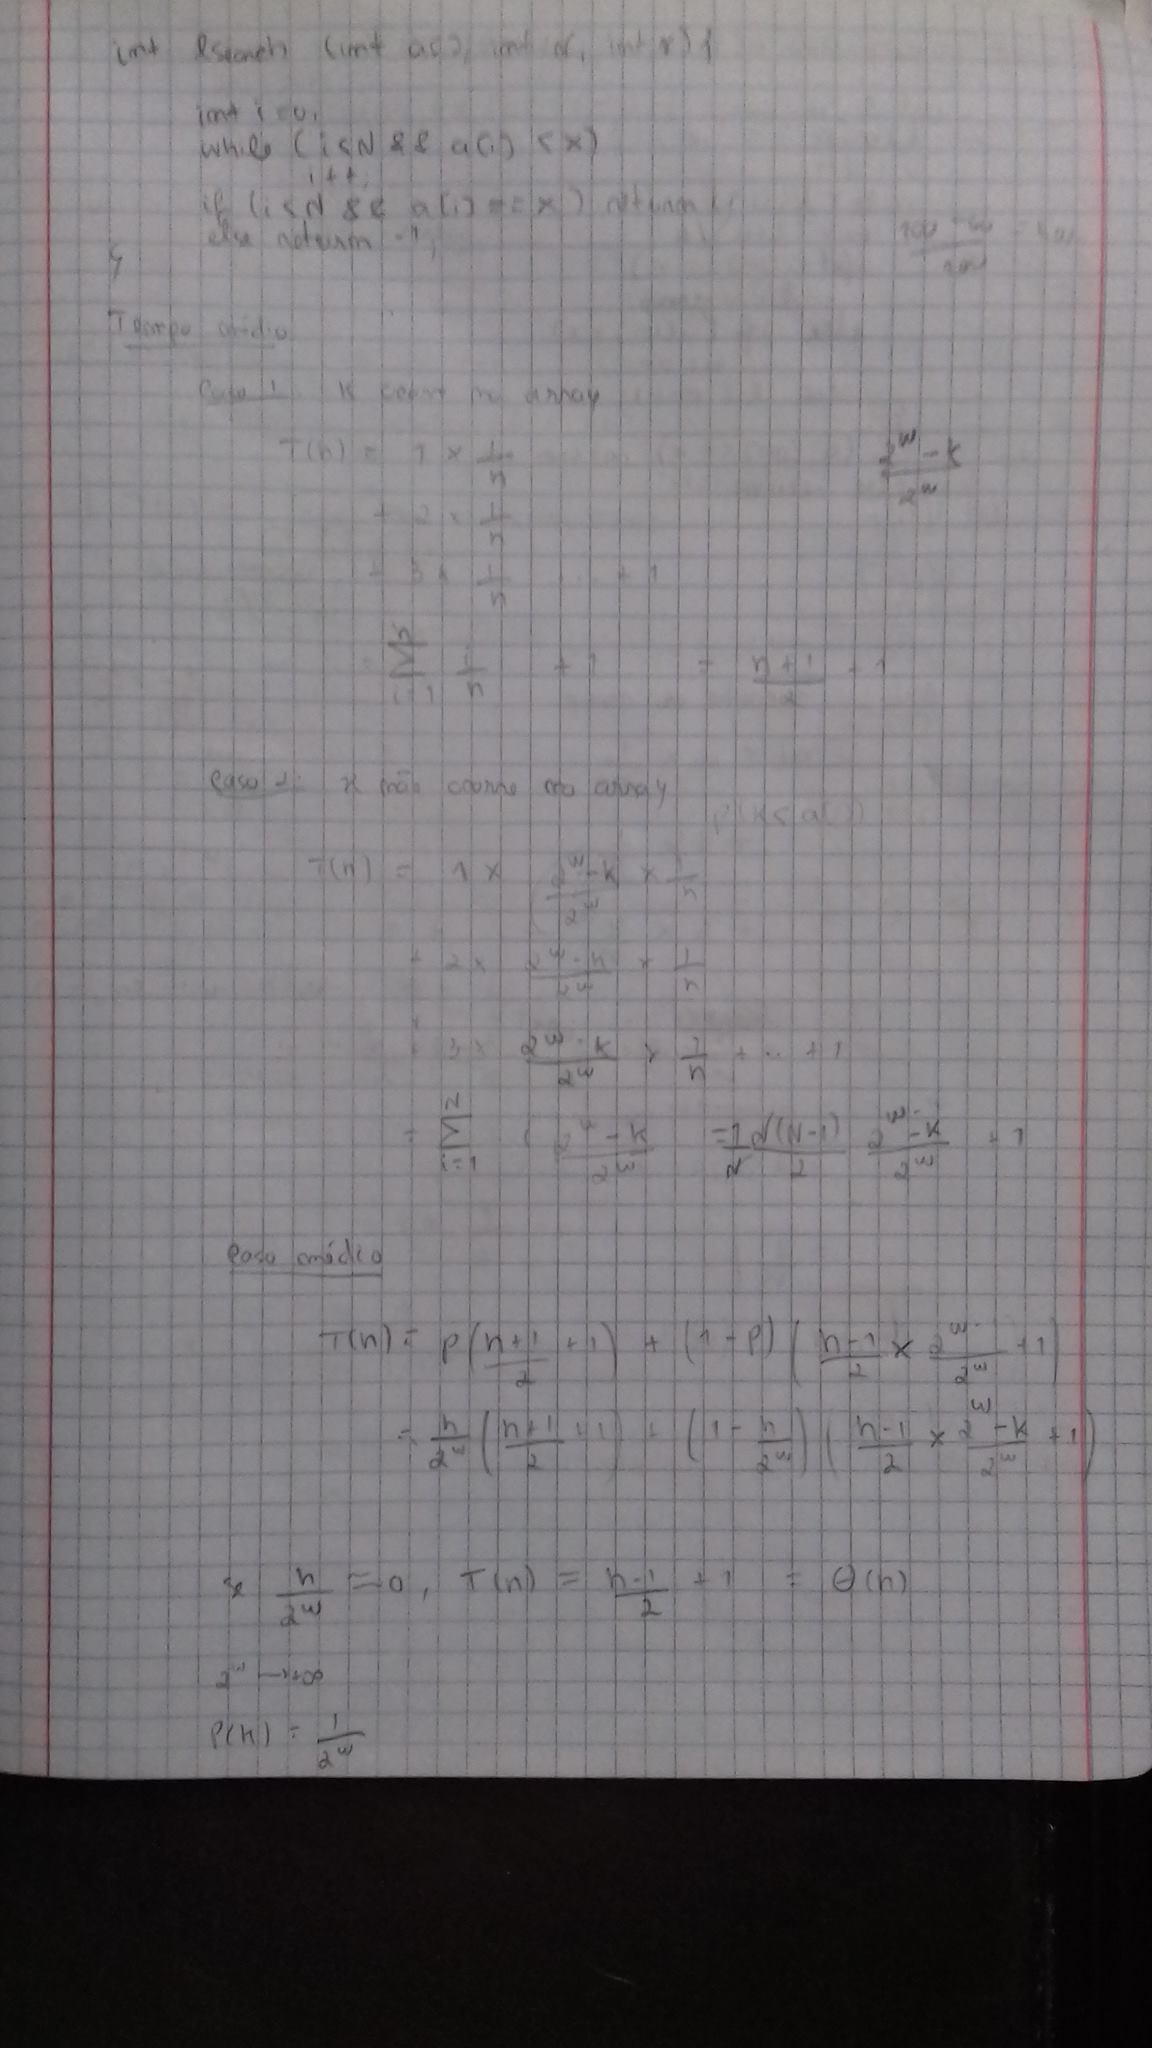 int lsearch (int a[], int N, int x) {
int i=0;
while (i<N && a[i] < x)
i++;
if (i<N && a[i] == x) return i;
else return -1;
}
Tempo médio
Caso 1: x ocorre no array
T(n) = 1 × 1/n
+ 2 × 1/n
2^w - k / 2^w
+ 3 × 1/n ... + 1
= Σ i=1 n i/n + 1 = n+1/2 + 1
Caso 2: x não ocorre no array
P(x < a[i])
T(n) = 1 × 2^w - k / 2^w × 1/n
+ 2 × 2^w - k / 2^w × 1/n
+ 3 × 2^w - k / 2^w × 1/n + ... + 1
= Σ i=1 N i 2^w - k / 2^w = 1/N N(N-1)/2 2^w - k / 2^w + 1
Caso médio
T(n) = P(n+1/2 + 1) + (1 - P)(n-1/2 × 2^w / 2^w + 1)
= n/2^w (n+1/2 + 1) + (1 - n/2^w)(n-1/2 × 2^w - k / 2^w + 1)
n/2^w ≈ 0, T(n) = n-1/2 + 1 = Θ(n)
2^w → +∞
P(k) = 1/2^w